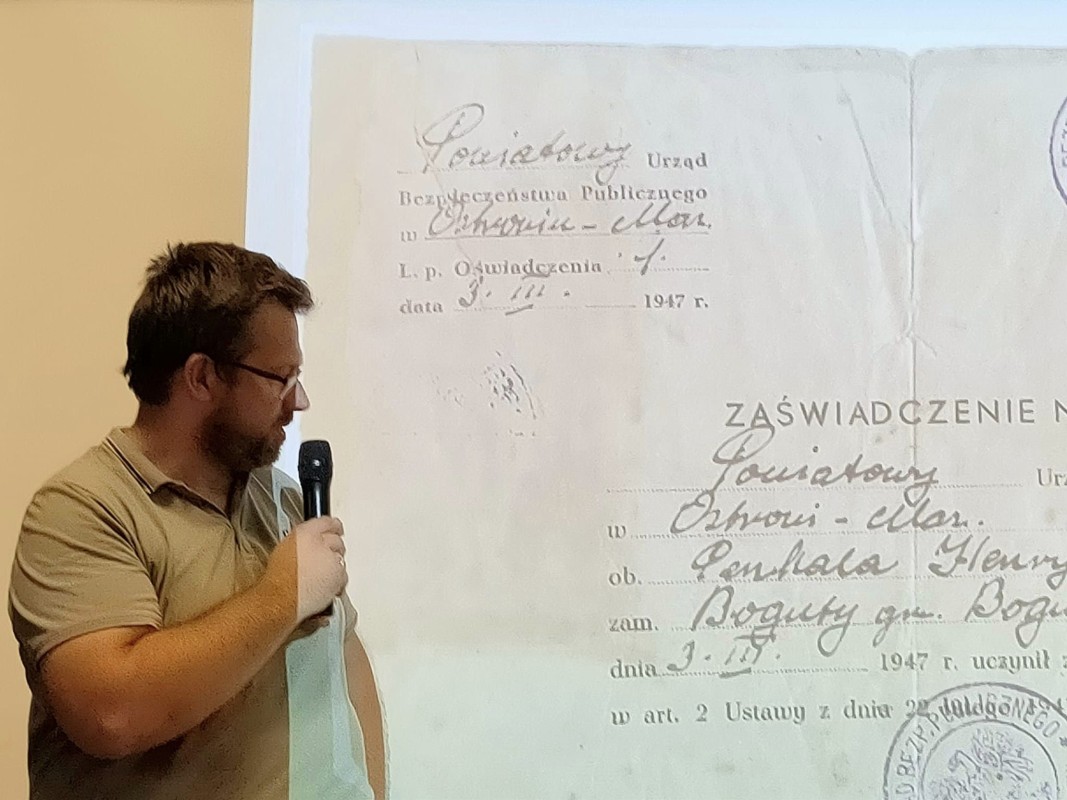 Powiatowy Urząd
Bezpieczeństwa Publicznego
w Ostrowiu - Maz.
L. p. Oświadczenia 1.
data 3. III. 1947 r.
ZAŚWIADCZENIE N
Powiatowy Urz
w Ostrowi - Maz.
ob. Penkala Henry
zam. Boguty gm. Bogu
dnia 3. III. 1947 r. uczynił z
w art. 2 Ustawy z dnia 22 lutego 194
D BEZP. PUBLICZNEGO